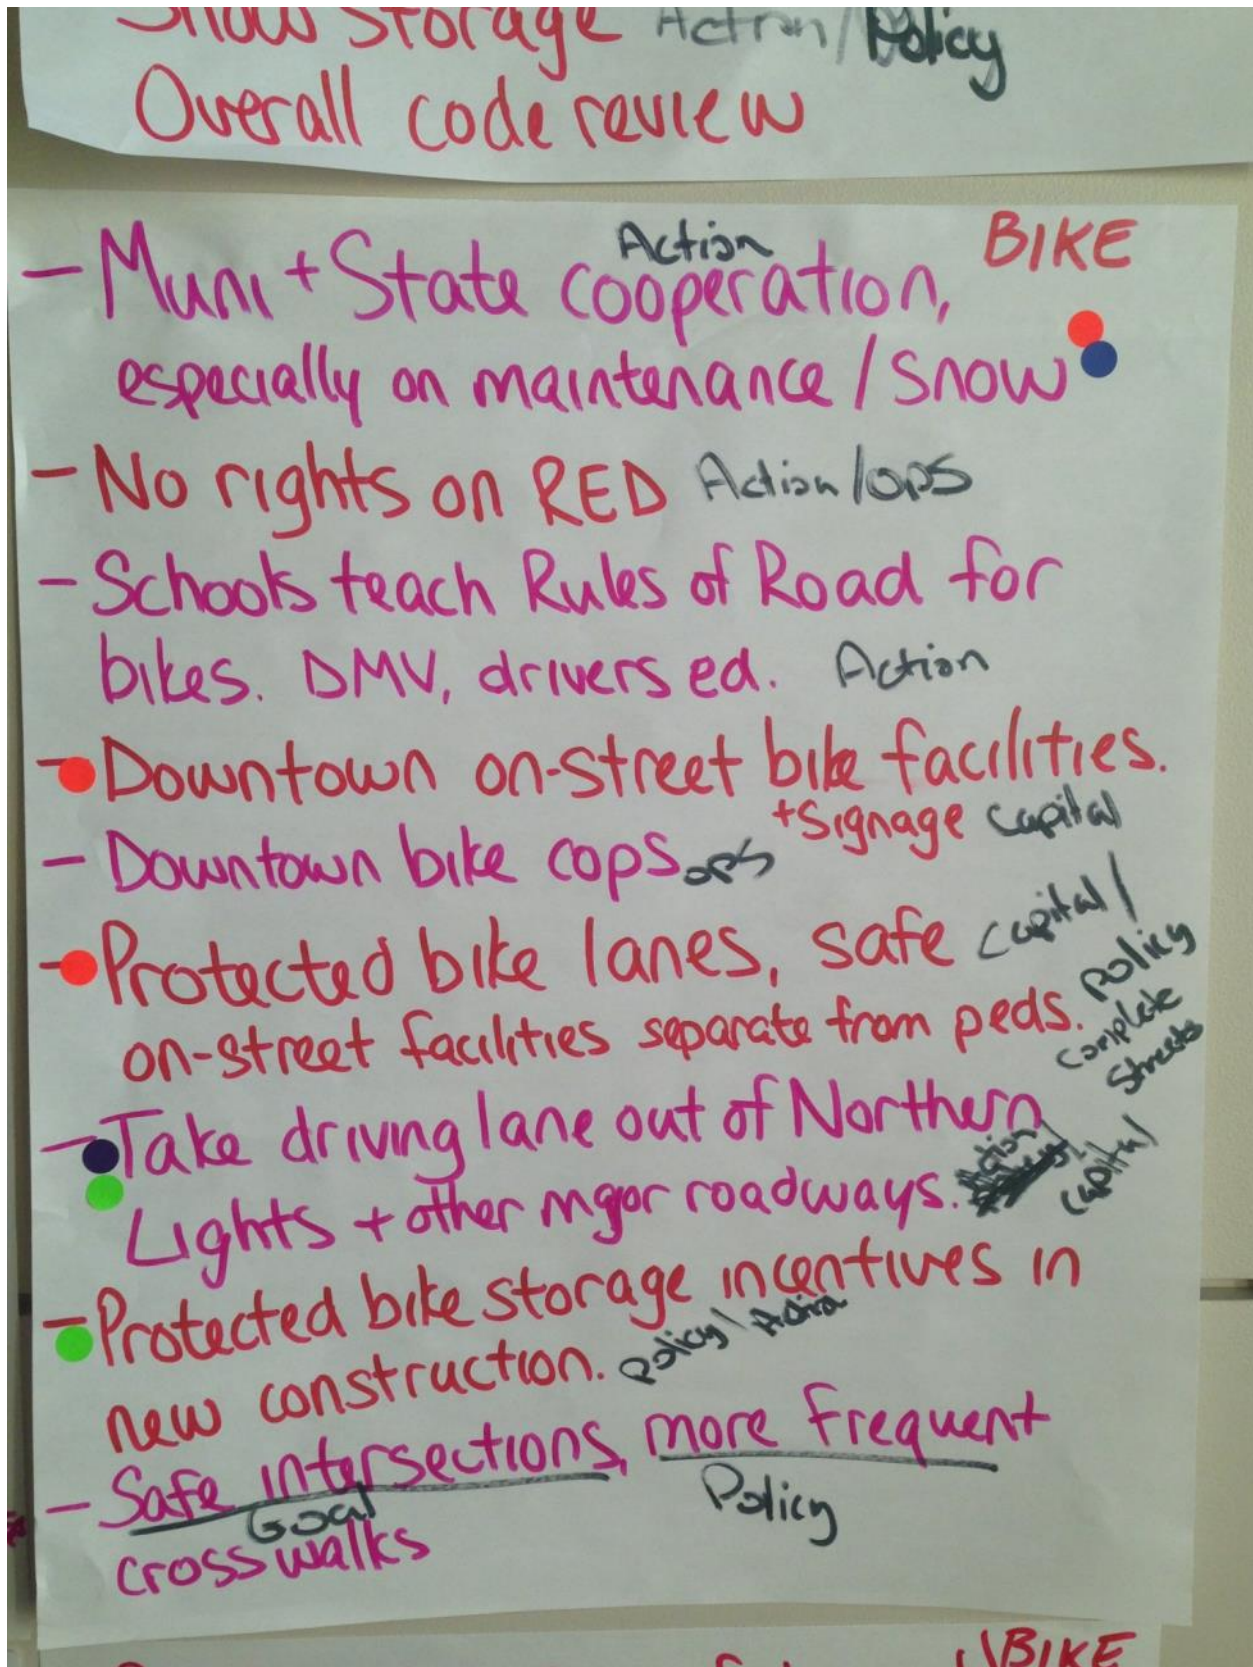 Snow storage Action/Policy
Overall code review
BIKE
Action
- Muni + State cooperation,
especially on maintenance / Snow
- No rights on RED Action/ops
- Schools teach Rules of Road for
bikes. DMV, drivers ed. Action
- Downtown on-street bike facilities.
+signage capital
- Downtown bike cops. ops
- Protected bike lanes, safe capital/
policy
on-street facilities separate from peds.
complete
streets
- Take driving lane out of Northern
Lights + other major roadways. capital
- Protected bike storage incentives in
new construction. policy \ Action
- Safe intersections, more frequent
Goal Policy
crosswalks
BIKE